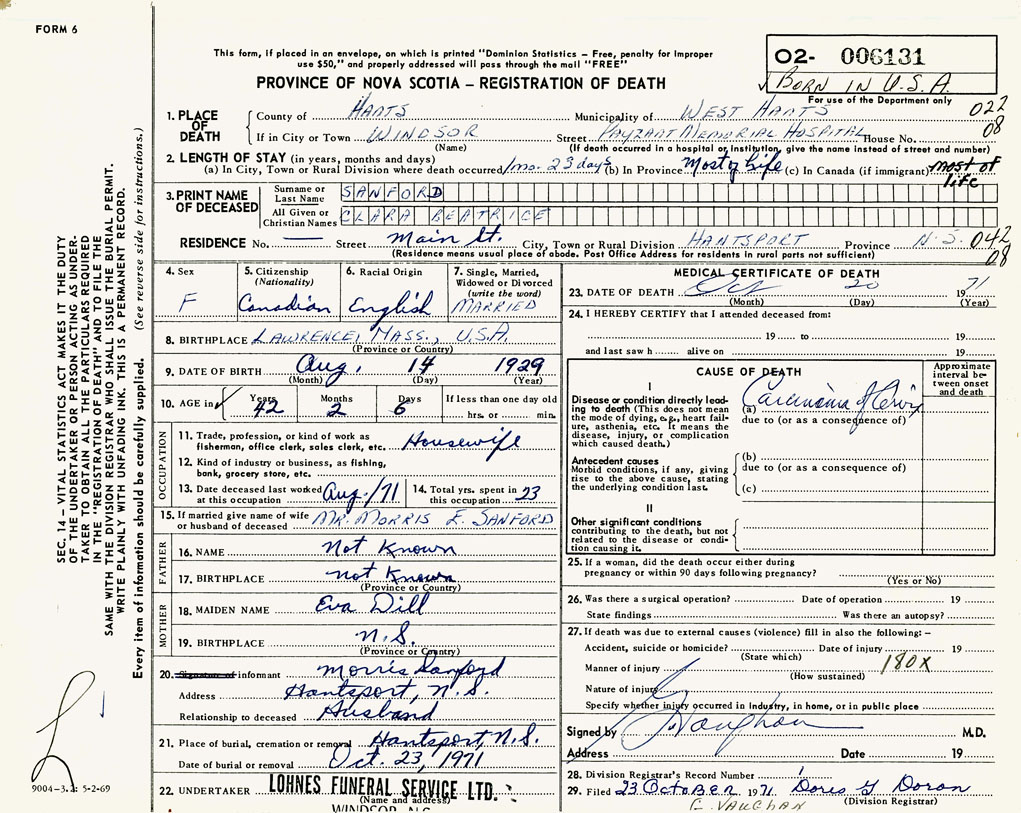 FORM 6
This form, if placed in an envelope, on which is printed "Dominion Statistics - Free, penalty for improper
use $50," and properly addressed will pass through the mail "FREE"
PROVINCE OF NOVA SCOTIA - REGISTRATION OF DEATH
02- 006131
BORN IN U.S.A.
For use of the Department only
1. PLACE OF DEATH
County of HANTS Municipality of WEST HANTS 022
If in City or Town WINDSOR Street PAYZANT MEMORIAL HOSPITAL House No. 08
(Name) (If death occurred in a hospital or institution, give the name instead of street and number)
2. LENGTH OF STAY (in years, months and days)
(a) In City, Town or Rural Division where death occurred 1 mo. 23 days (b) In Province Most of life (c) In Canada (if immigrant) most of life
3. PRINT NAME OF DECEASED
Surname or Last Name SANFORD
All Given or Christian Names CLARA BEATRICE
RESIDENCE No. — Street Main St. City, Town or Rural Division HANTSPORT Province N.S. 042
(Residence means usual place of abode. Post Office Address for residents in rural parts not sufficient) 08
4. Sex F
5. Citizenship (Nationality) Canadian
6. Racial Origin English
7. Single, Married, Widowed or Divorced (write the word) MARRIED
8. BIRTHPLACE LAWRENCE, MASS., U.S.A.
(Province or Country)
9. DATE OF BIRTH Aug. 14 1929
(Month) (Day) (Year)
10. AGE in Years 42 Months 2 Days 6 If less than one day old hrs. or min.
OCCUPATION
11. Trade, profession, or kind of work as fisherman, office clerk, sales clerk, etc. Housewife
12. Kind of industry or business, as fishing, bank, grocery store, etc.
13. Date deceased last worked at this occupation Aug./71
14. Total yrs. spent in this occupation 23
15. If married give name of wife or husband of deceased MR. MORRIS E. SANFORD
FATHER
16. NAME Not Known
17. BIRTHPLACE not Known
(Province or Country)
MOTHER
18. MAIDEN NAME Eva Dill
19. BIRTHPLACE N.S.
(Province or Country)
20. Signature of informant Morris Sanford
Address Hantsport, N.S.
Relationship to deceased Husband
21. Place of burial, cremation or removal Hantsport, N.S.
Date of burial or removal Oct. 23, 1971
22. UNDERTAKER LOHNES FUNERAL SERVICE LTD.
(Name and address)
WINDSOR, N.S.
MEDICAL CERTIFICATE OF DEATH
23. DATE OF DEATH Oct 20 1971
(Month) (Day) (Year)
24. I HEREBY CERTIFY that I attended deceased from:
19 to 19
and last saw h alive on 19
CAUSE OF DEATH
Approximate interval between onset and death
I
Disease or condition directly leading to death (This does not mean the mode of dying, e.g., heart failure, asthenia, etc. It means the disease, injury, or complication which caused death.)
(a) Carcinoma of Cervix
due to (or as a consequence of)
Antecedent causes
Morbid conditions, if any, giving rise to the above cause, stating the underlying condition last.
(b)
due to (or as a consequence of)
(c)
II
Other significant conditions
contributing to the death, but not related to the disease or condition causing it.
25. If a woman, did the death occur either during pregnancy or within 90 days following pregnancy?
(Yes or No)
26. Was there a surgical operation? Date of operation 19
State findings Was there an autopsy?
27. If death was due to external causes (violence) fill in also the following: -
Accident, suicide or homicide? Date of injury 19
(State which)
Manner of injury 180X
(How sustained)
Nature of injury
Specify whether injury occurred in industry, in home, or in public place
Signed by G Vaughan M.D.
Address Date 19
28. Division Registrar's Record Number
29. Filed 23 OCTOBER 1971 Doris Y Doran
(Division Registrar)
G. VAUGHAN
SEC. 14 - VITAL STATISTICS ACT MAKES IT THE DUTY
OF THE UNDERTAKER OR PERSON ACTING AS UNDER-
TAKER TO OBTAIN ALL THE PARTICULARS REQUIRED
IN THE "REGISTRATION OF DEATH" AND TO FILE THE
SAME WITH THE DIVISION REGISTRAR WHO SHALL ISSUE THE BURIAL PERMIT.
WRITE PLAINLY WITH UNFADING INK. THIS IS A PERMANENT RECORD.
Every item of information should be carefully supplied. (See reverse side for instructions.)
9004-3.1: 5-2-69